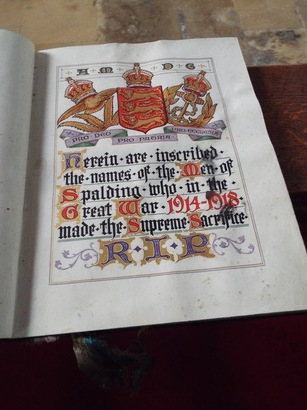 A M D G
PRO DEO
PRO PATRIA
Herein · are · inscribed ·
the · names · of · the · Men · of
Spalding · who · in · the ·
Great · War · 1914-1918 ·
made · the · Supreme · Sacrifice ·
R · I · P